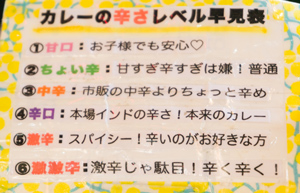 カレーの辛さレベル早見表
①甘口：お子様でも安心♡
②ちょい辛：甘すぎ辛すぎは嫌！普通
③中辛：市販の中辛よりちょっと辛め
④辛口：本場インドの辛さ！本来のカレー
⑤激辛：スパイシー！辛いのがお好きな方
⑥激激辛：激辛じゃ駄目！辛く辛く！